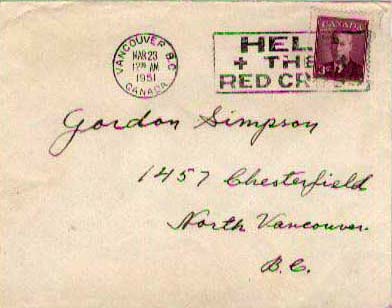 VANCOUVER B.C.
MAR 23
AM
1951
CANADA
HEL
+ THE
RED CR
CANADA
Gordon Simpson
1457 Chesterfield
North Vancouver.
B.C.